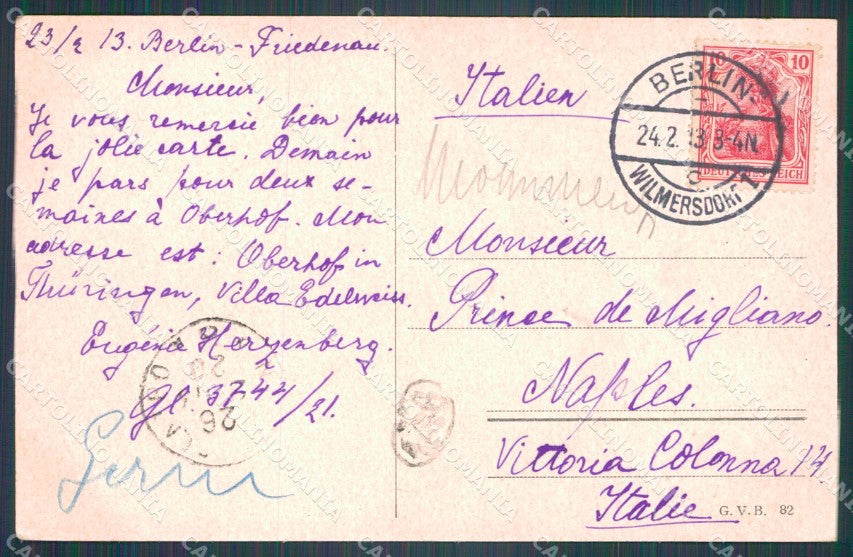 23/2 13. Berlin-Friedenau.
Monsieur,
Je vous remercie bien pour
la jolie carte. Demain
je pars pour deux se-
maines à Oberhof. Mon
adresse est: Oberhof in
Thüringen, Villa Edelweiss.
Eugénie Herzenberg.
Gl 3744/21.
Italien
BERLIN-
24.2.13 3-4N
WILMERSDORF 1
c
10 10
DEUTSCHES REICH
Monsieur
Prince de Migliano.
Naples.
Vittoria Colonna 14
Italie
G. V. B. 82
CARTOLINOMANIA